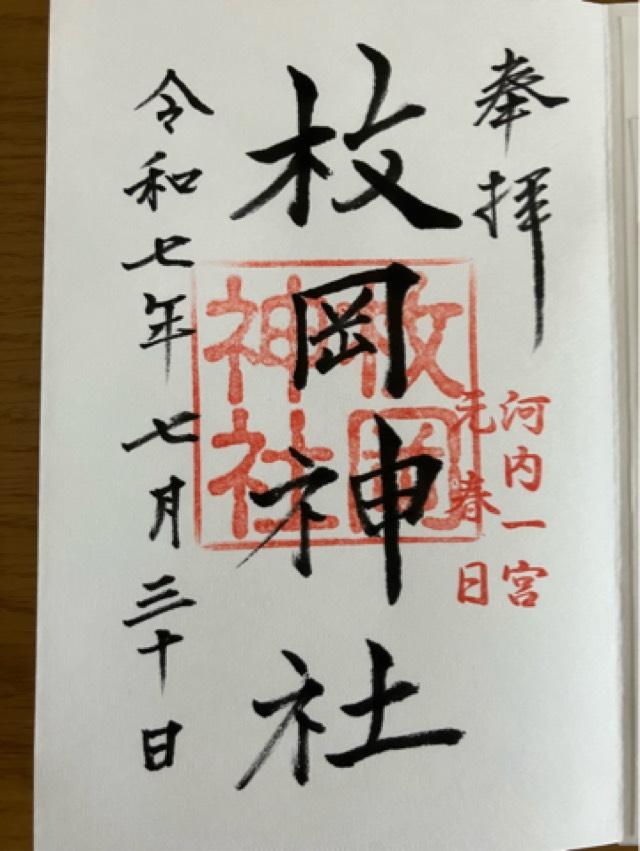 奉拝
河内一宮
元春日
枚岡神社
枚岡
神社
令和七年七月三十日